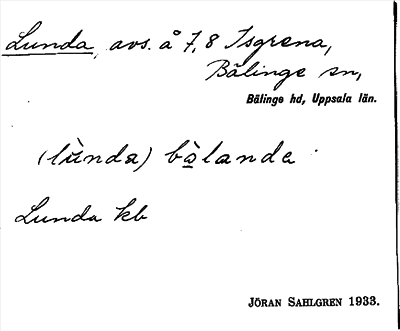 Lunda, avs. å 7, 8 Isgrena,
Bälinge sn,
Bälinge hd, Uppsala län.
(lùnda) bà̤landa
Lunda kb
JÖRAN SAHLGREN 1933.